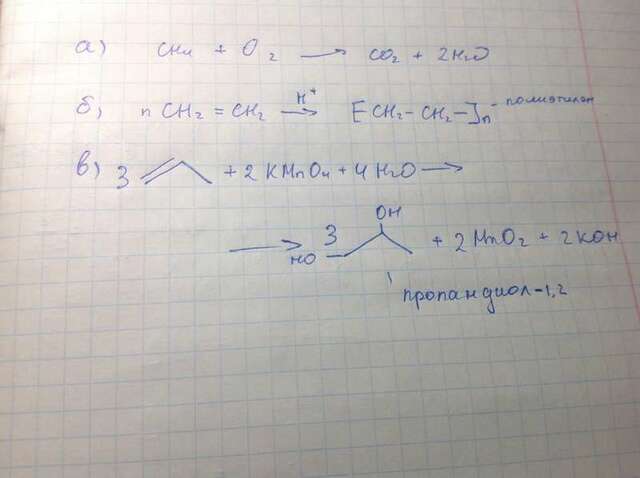 а) CH4 + O2 → CO2 + 2H2O
б) n CH2 = CH2 H+ → [CH2 - CH2-]n - полиэтилен
в) 3 + 2 KMnO4 + 4 H2O →
→ 3 HO OH + 2 MnO2 + 2 KOH
пропандиол-1,2